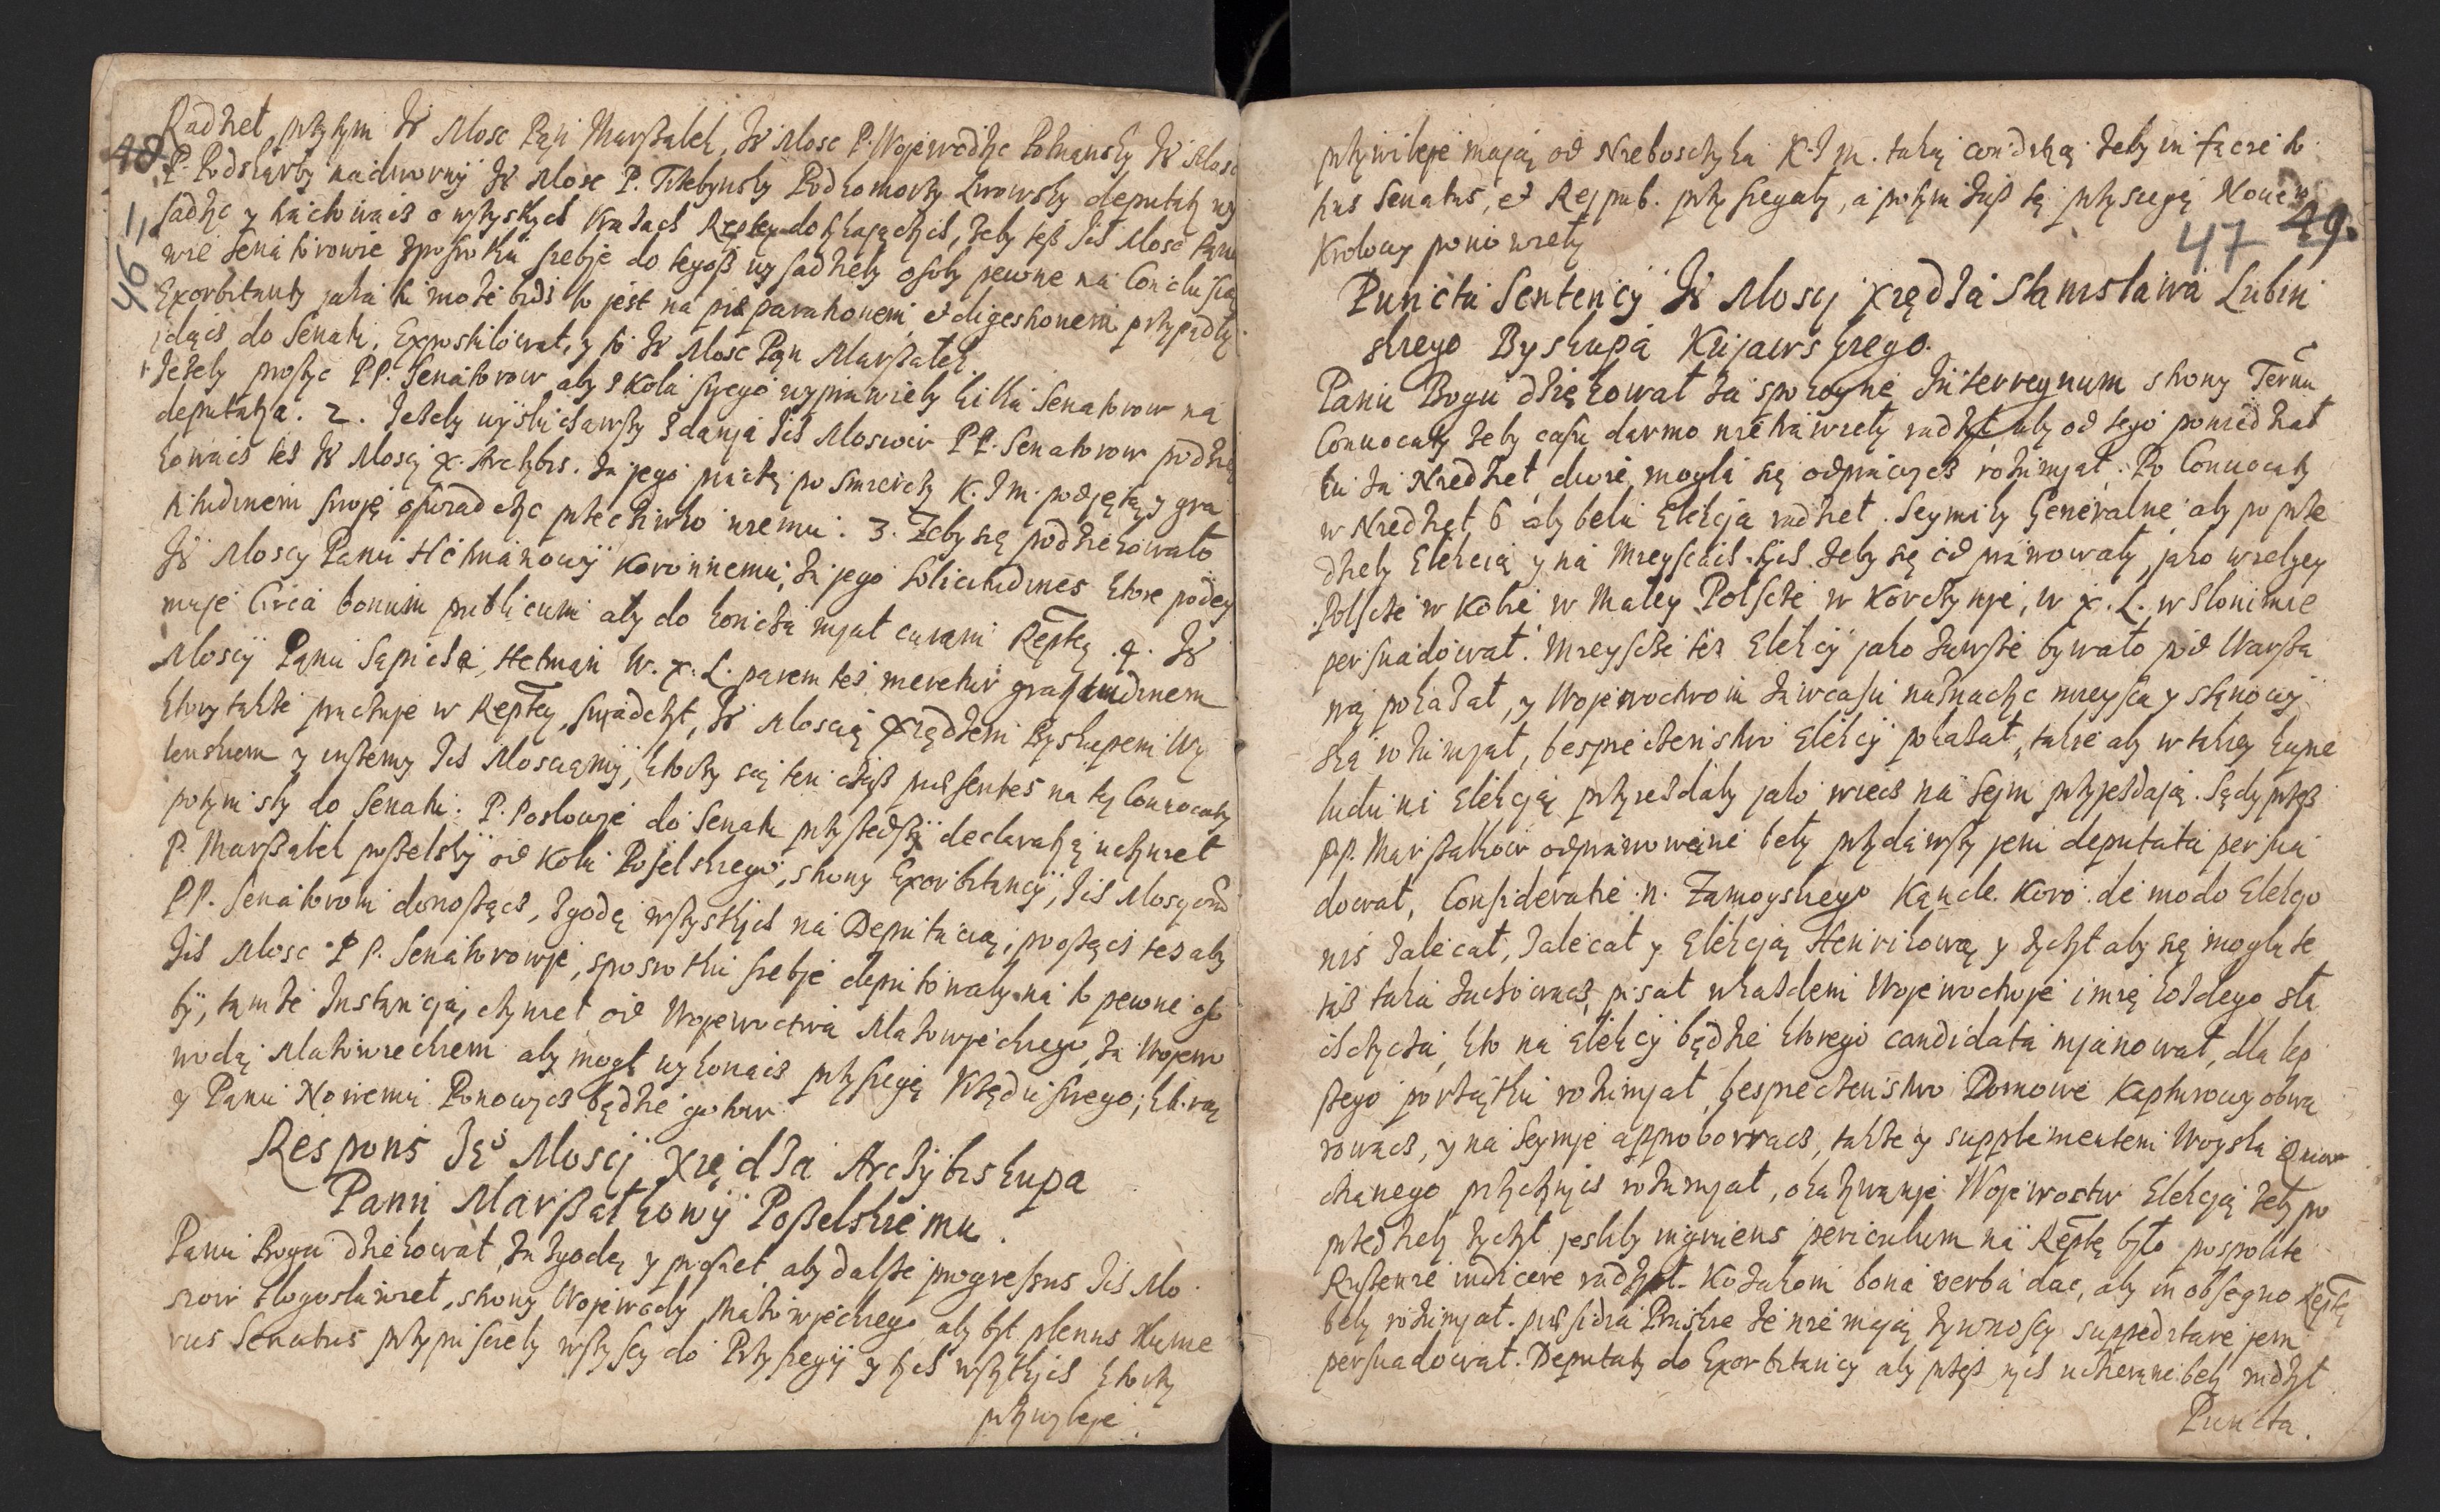 48.
46
Radzieł, przytym Je Mosc Pąn Marszałek, Je Mosc P. Wojewodzic Poznansky Je Mosc
P. Podskarby nadworny Je Mosc P. Trzebynsky Podkomorzy Lwowsky deputaty wy
sadzic y nachowacz o wszyskych Krzadach Reptey dotykających, zeby tesz Jch Mosc Pano
wie Senatorowie zposrotku siebje do tegosz wysadziely osoby pewne na Conclusią
Exorbitanty jaka ti może bydz to jest na prae parationem et digestionem przypadły
idącz do Senatu, Expostulował, y to Je Mosc Pąn Marszałek.
1 Jeżely prosyc PP. Senatorow aby z Kola swego wyprawiely kilku Senatorow na
deputatya. 2. Jeżely wysłuchawszy zdanja Jch Moscow PP. Senatorow podzię
kowacz tesz Je Moscj X. Archybis. za jego pracką po smiercy K. J m. podjętą y gra
titudinem swoję oswiadczyc przeciwko niemu. 3. Zeby się podziekowalo
Je Moscy Panu Hetmanowy Koronnemu, za jego Solicitudines ktore podey
muje Circa bonum publicum aby do koncza mjał curam Reptą. 4. Je
Moscy Panu Sapieha, Hetman W. X. L. parem tesz meretur gratitudinem
ktory takze pracuje w Reptey, swiadczył, Je Moscią Xiędzem Byskupem Wy
lenskem y inszemy Jch Mosciąmy, ktorzy się ten czasz praesentes na tej Convocaty
potym szly do Senatu. P. Poslowje do Senatu przyszedszy declaratyą uczyniel
P. Marszałek poselsky od Kola Poselskiego, strony Exorbitancyj, Jch Moscyom
PP. Senatorom donosząc, zgodę wszystkich na Deputacią, prosząc tez aby
Jch Mosc PP. Senatorowje, sposrotku siebje deputowaly na to pewne oso
by, tamze Instancja, czyniel od Wojewoctwa Mazowjeckiego, za Wojewo
wodą Mazowieckiem aby mogł wykonacz przysiegię Krzędu swego, ktorą
y Panu Nowemu Ponowycz będzie gotow.
Respons Je Moscj Xiędza Arczybiskupa
Panu Marszałkowy Poselskiemu.
Panu Bogu dziekował za zgodę y prosieł aby dalsze progressus Jch Mo
sciow błogosławieł, strony Wojewody Mazowjeckiego aby był plenus Nume
rus Senatus przypusciely wszyscy do Przysiegy y tych wszytkich ktorzy
przywyleje.
49.
47
przywileje mają od Nieboszczyka K. J m. taką conditią zeby in facie to
tius Senatus, et Reipub. przysiegaly, a potym tusz tą przysiegę Nowem
Krolowy ponowiely
Puncta Sentencyj Je Moscj Xiędza Stanislawa Lubin
skiego Byskupa Kujawskiego.
Panu Bogu dziękował za spokoyne Interregnum strony Termi
Convocaty zeby casu darmo nie trawiely radzył, aby od tego poniedział
ku za Niedziel dwie, mogla się odprawjcz rozumjał. Po Convocaty
w Niedziel 6 aby bela Elekcja radziel. Seymiky Generalne aby po prze
dziely Elekcią y na Mieyscach tych zeby się od prawowaly, jako w Wielgiey
Polscze w Kole, w Maley Polscze w Korczynje, w X. L. w Slonimie
persuadował. Mieyscze tez Elekcij jako zawsze bywało pod Warsza
wą pokazał, y Wojewoctwom zawczasu naznaczyc mieysca y stanowy
ska rozumjał, bespieczenstwo Elekcij pokazał, takie aby w takiey kupie
ludu na Elekcją przyjezdaly jako wiecz na Sejm przyjezdają. Sądy przesz
PP. Marszalkow odprawowane bely przydawszy jem deputata persua
dował, Consideratie .n. Zamoyskiego Kancle. Koro. de modo Elekgo
nis zalecał, Zalecał y Elekcją Henrikową y zyczył aby się mogla te
rasz taka zachowacz, pisał w kazdem Wojewoctwje imię kożdego szla
chczycza, kto na Elekcij będzie ktorego candidata mjanował, dla lep
szego porządku rozumjał, bespieczenstwo Domowe Kapturowy obwa
rowacz, y na Seymje approbowacz, takze y supplementem Woyska Quar
cianego przyczynicz rozumjał, okazywanje Wojewostw Elekcją zeby po
przedziely zyczył, jesliby ingruens periculum na Reptę było pospolite
Ruszenie indicere radzył. Kozakom bona verba dac, aby in obsegno Reptę
bely rozumjał. praesidia Pruskie ze nie mają zywnoscy suppeditare jem
persuadował. Deputaty do Exorbitancy aby przesz nych uchwane bely radzył
Puncta.